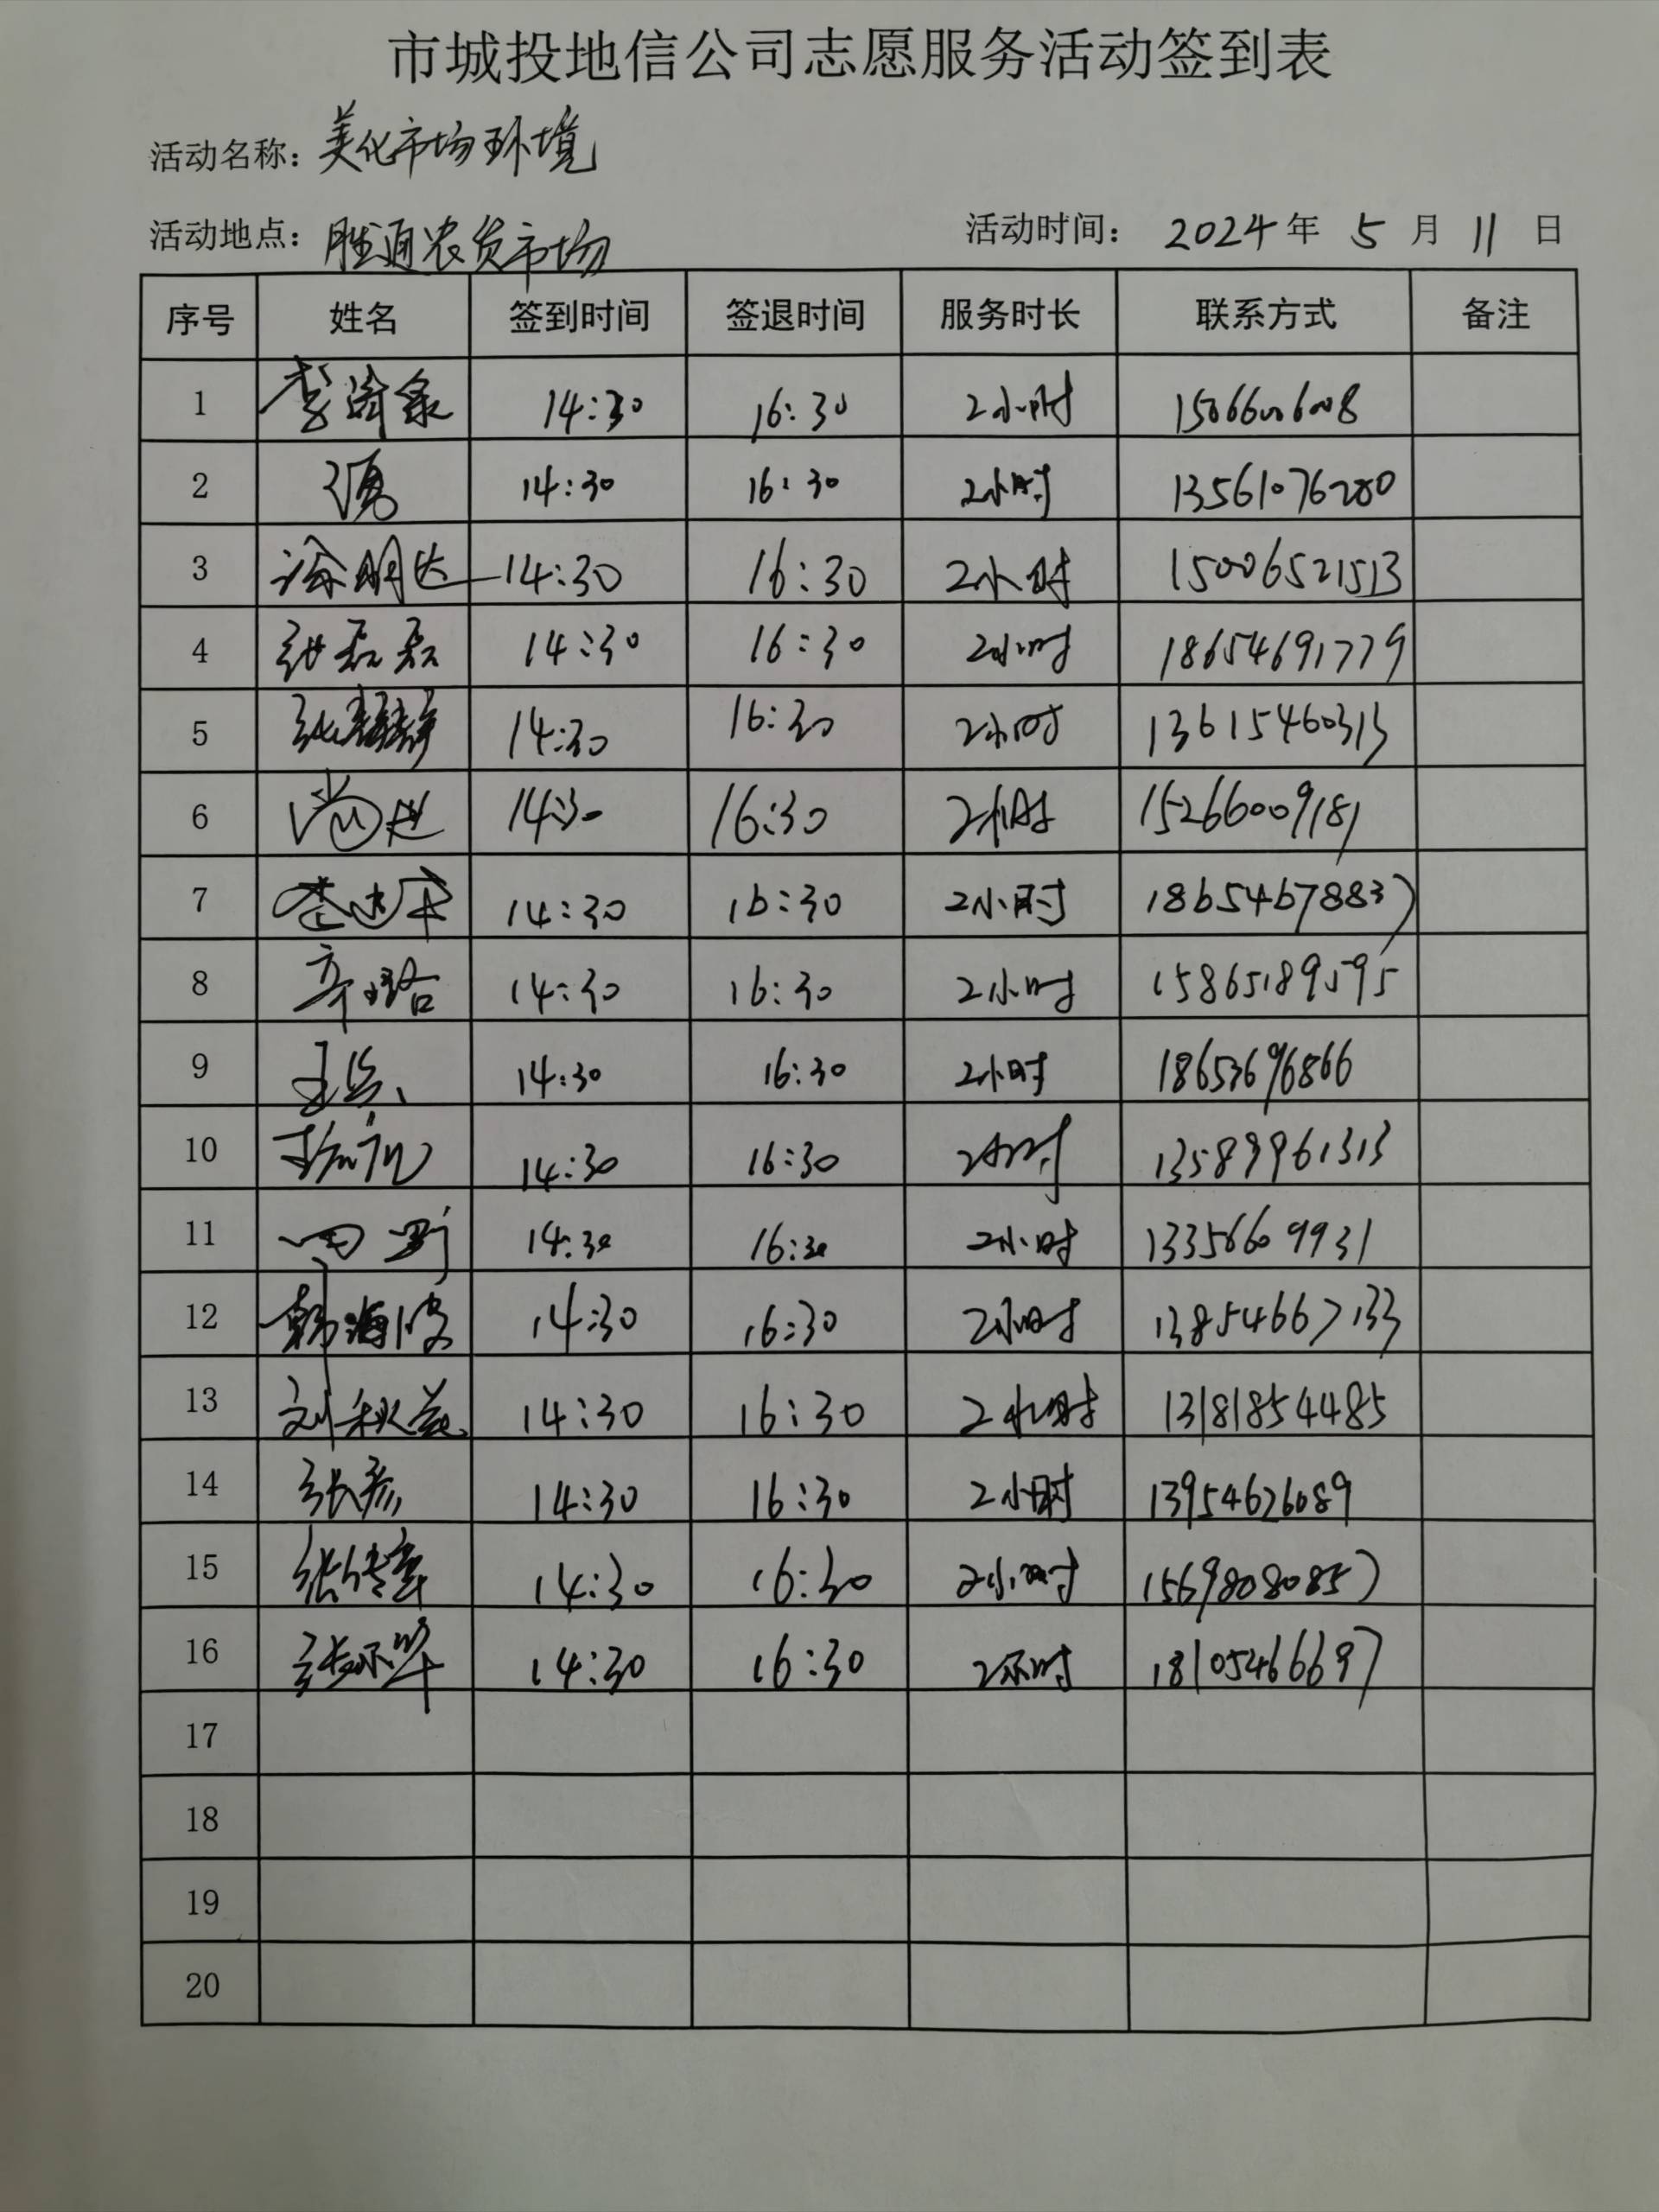 市城投地信公司志愿服务活动签到表
活动名称：美化市场环境
活动地点：胜通农贸市场 活动时间： 2024年 5 月 11 日
序号 姓名 签到时间 签退时间 服务时长 联系方式 备注
1 14:30 16:30 2小时 15066006008
2 14:30 16:30 2小时 13561076280
3 14:30 16:30 2小时 15006521513
4 张磊磊 14:30 16:30 2小时 18654691779
5 14:30 16:30 2小时 13615460313
6 14:30 16:30 2小时 15266009181
7 14:30 16:30 2小时 18654678837
8 14:30 16:30 2小时 15865189595
9 14:30 16:30 2小时 18653696866
10 14:30 16:30 2小时 13589961313
11 田野 14:30 16:30 2小时 13356609931
12 韩海波 14:30 16:30 2小时 13854667133
13 刘秋兰 14:30 16:30 2小时 13181854485
14 张彦 14:30 16:30 2小时 13954626089
15 14:30 16:30 2小时 15698080857
16 14:30 16:30 2小时 18105466697
17
18
19
20